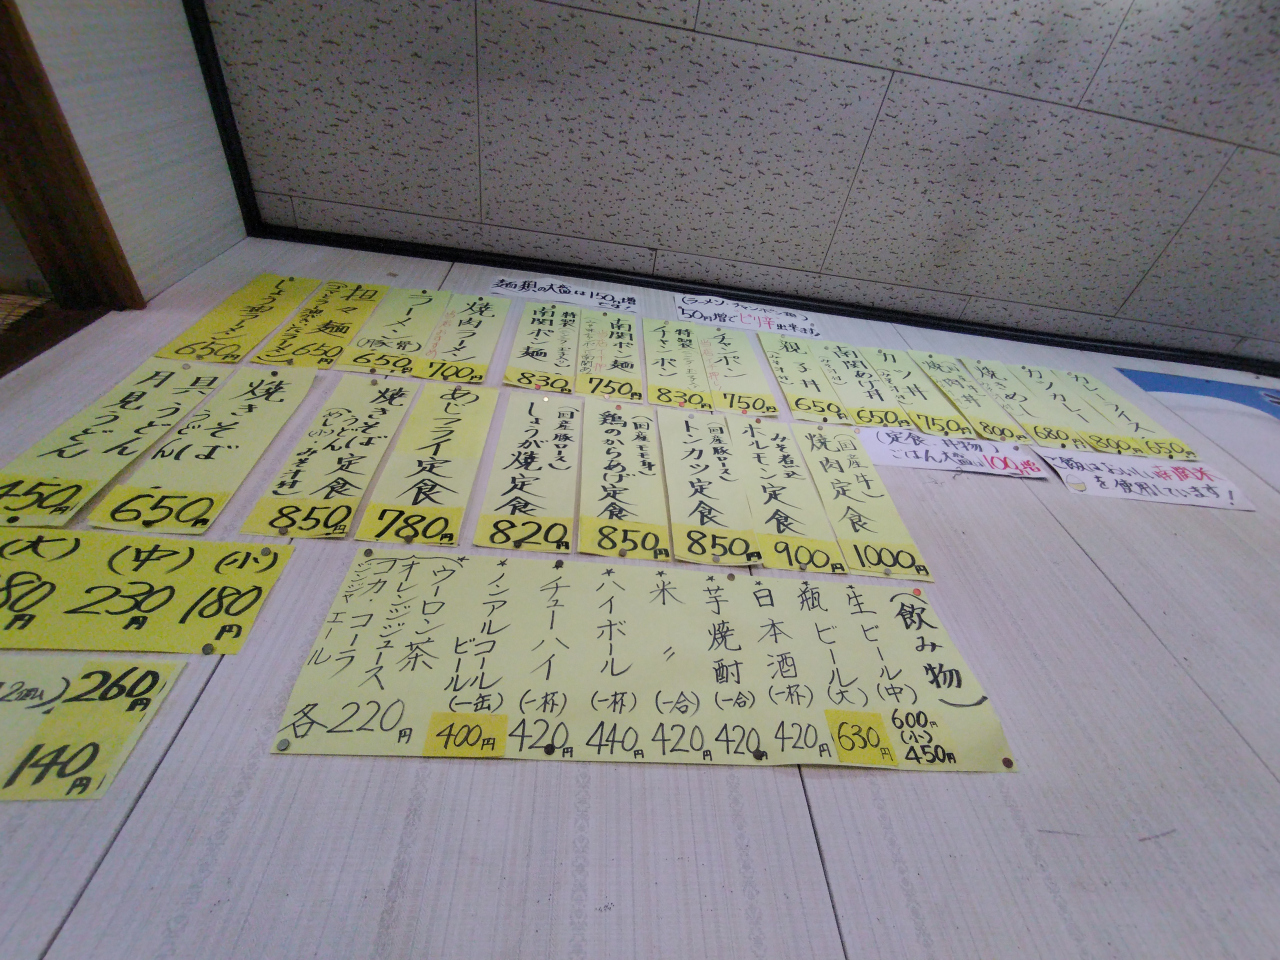 麺類の大盛は150円増
です!
(ラーメン・チャンポン類)
50円増でピリ辛出来ます
カレーライス
650円
カツカレー
800円
焼きめし
680円
焼肉丼
800円
カツ丼
750円
南関あげ丼
650円
親子丼
650円
チャンポン
750円
特製
チャンポン
830円
南関ポン麺
750円
特製
南関ポン麺
830円
焼肉ラーメン
700円
ラーメン
(豚骨)
650円
担々麺
650円
しょう油ラーメン
650円
(定食・丼物)
ごはん大盛 100円増
ご飯はおいしい南関米
を使用しています!
(国産牛)
焼肉定食
1000円
みそ煮込
ホルモン定食
900円
(国産豚ロース)
トンカツ定食
850円
(国産モモ身)
鶏のからあげ定食
850円
(国産豚ロース)
しょうが焼定食
820円
あじフライ定食
780円
焼きそば定食
(めし(小)みそ汁付)
850円
焼きそば
具うどん
650円
月見うどん
450円
(大) (中) (小)
80円 230円 180円
260円
140円
(飲み物)
生ビール(中)
600円
(小)
450円
*瓶ビール(大)
630円
*日本酒(一杯)
420円
*芋焼酎(一合)
420円
米〃(一合)
420円
*ハイボール(一杯)
440円
*チューハイ(一杯)
420円
*ノンアルコール
ビール(一缶)
400円
*ウーロン茶
オレンジジュース
コカ・コーラ
ジンジャエール
各220円